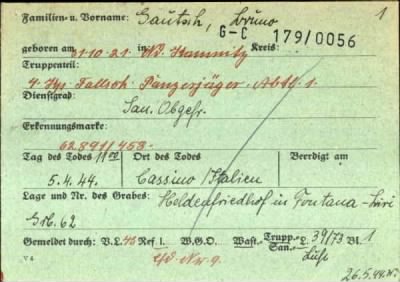 1
Familien- u. Vorname: Gautsch, Bruno
G-C 179/0056
geboren am 31.10.21. in Nd. Kamnitz Kreis:
Truppenteil:
4. Kp. Fallsch. Panzerjäger-Abtl. 1.
Dienstgrad:
San. Obgefr.
Erkennungsmarke:
62891/458
Tag des Todes 11 00 Ort des Todes Beerdigt am
5.4.44. Cassino /Italien
Lage und Nr. des Grabes: Heldenfriedhof in Fontana-Liri
Grb. 62
Gemeldet durch: V.L. 45 Ref 1. W.G.O. Wast.- Trupp.- San.- L. 39/73 Bl. 1
lfd. Nr. 9. Luft
V 4 26.5.44.